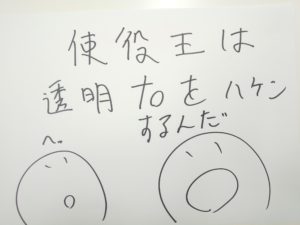 使役王は
透明toをハケン
するんだ